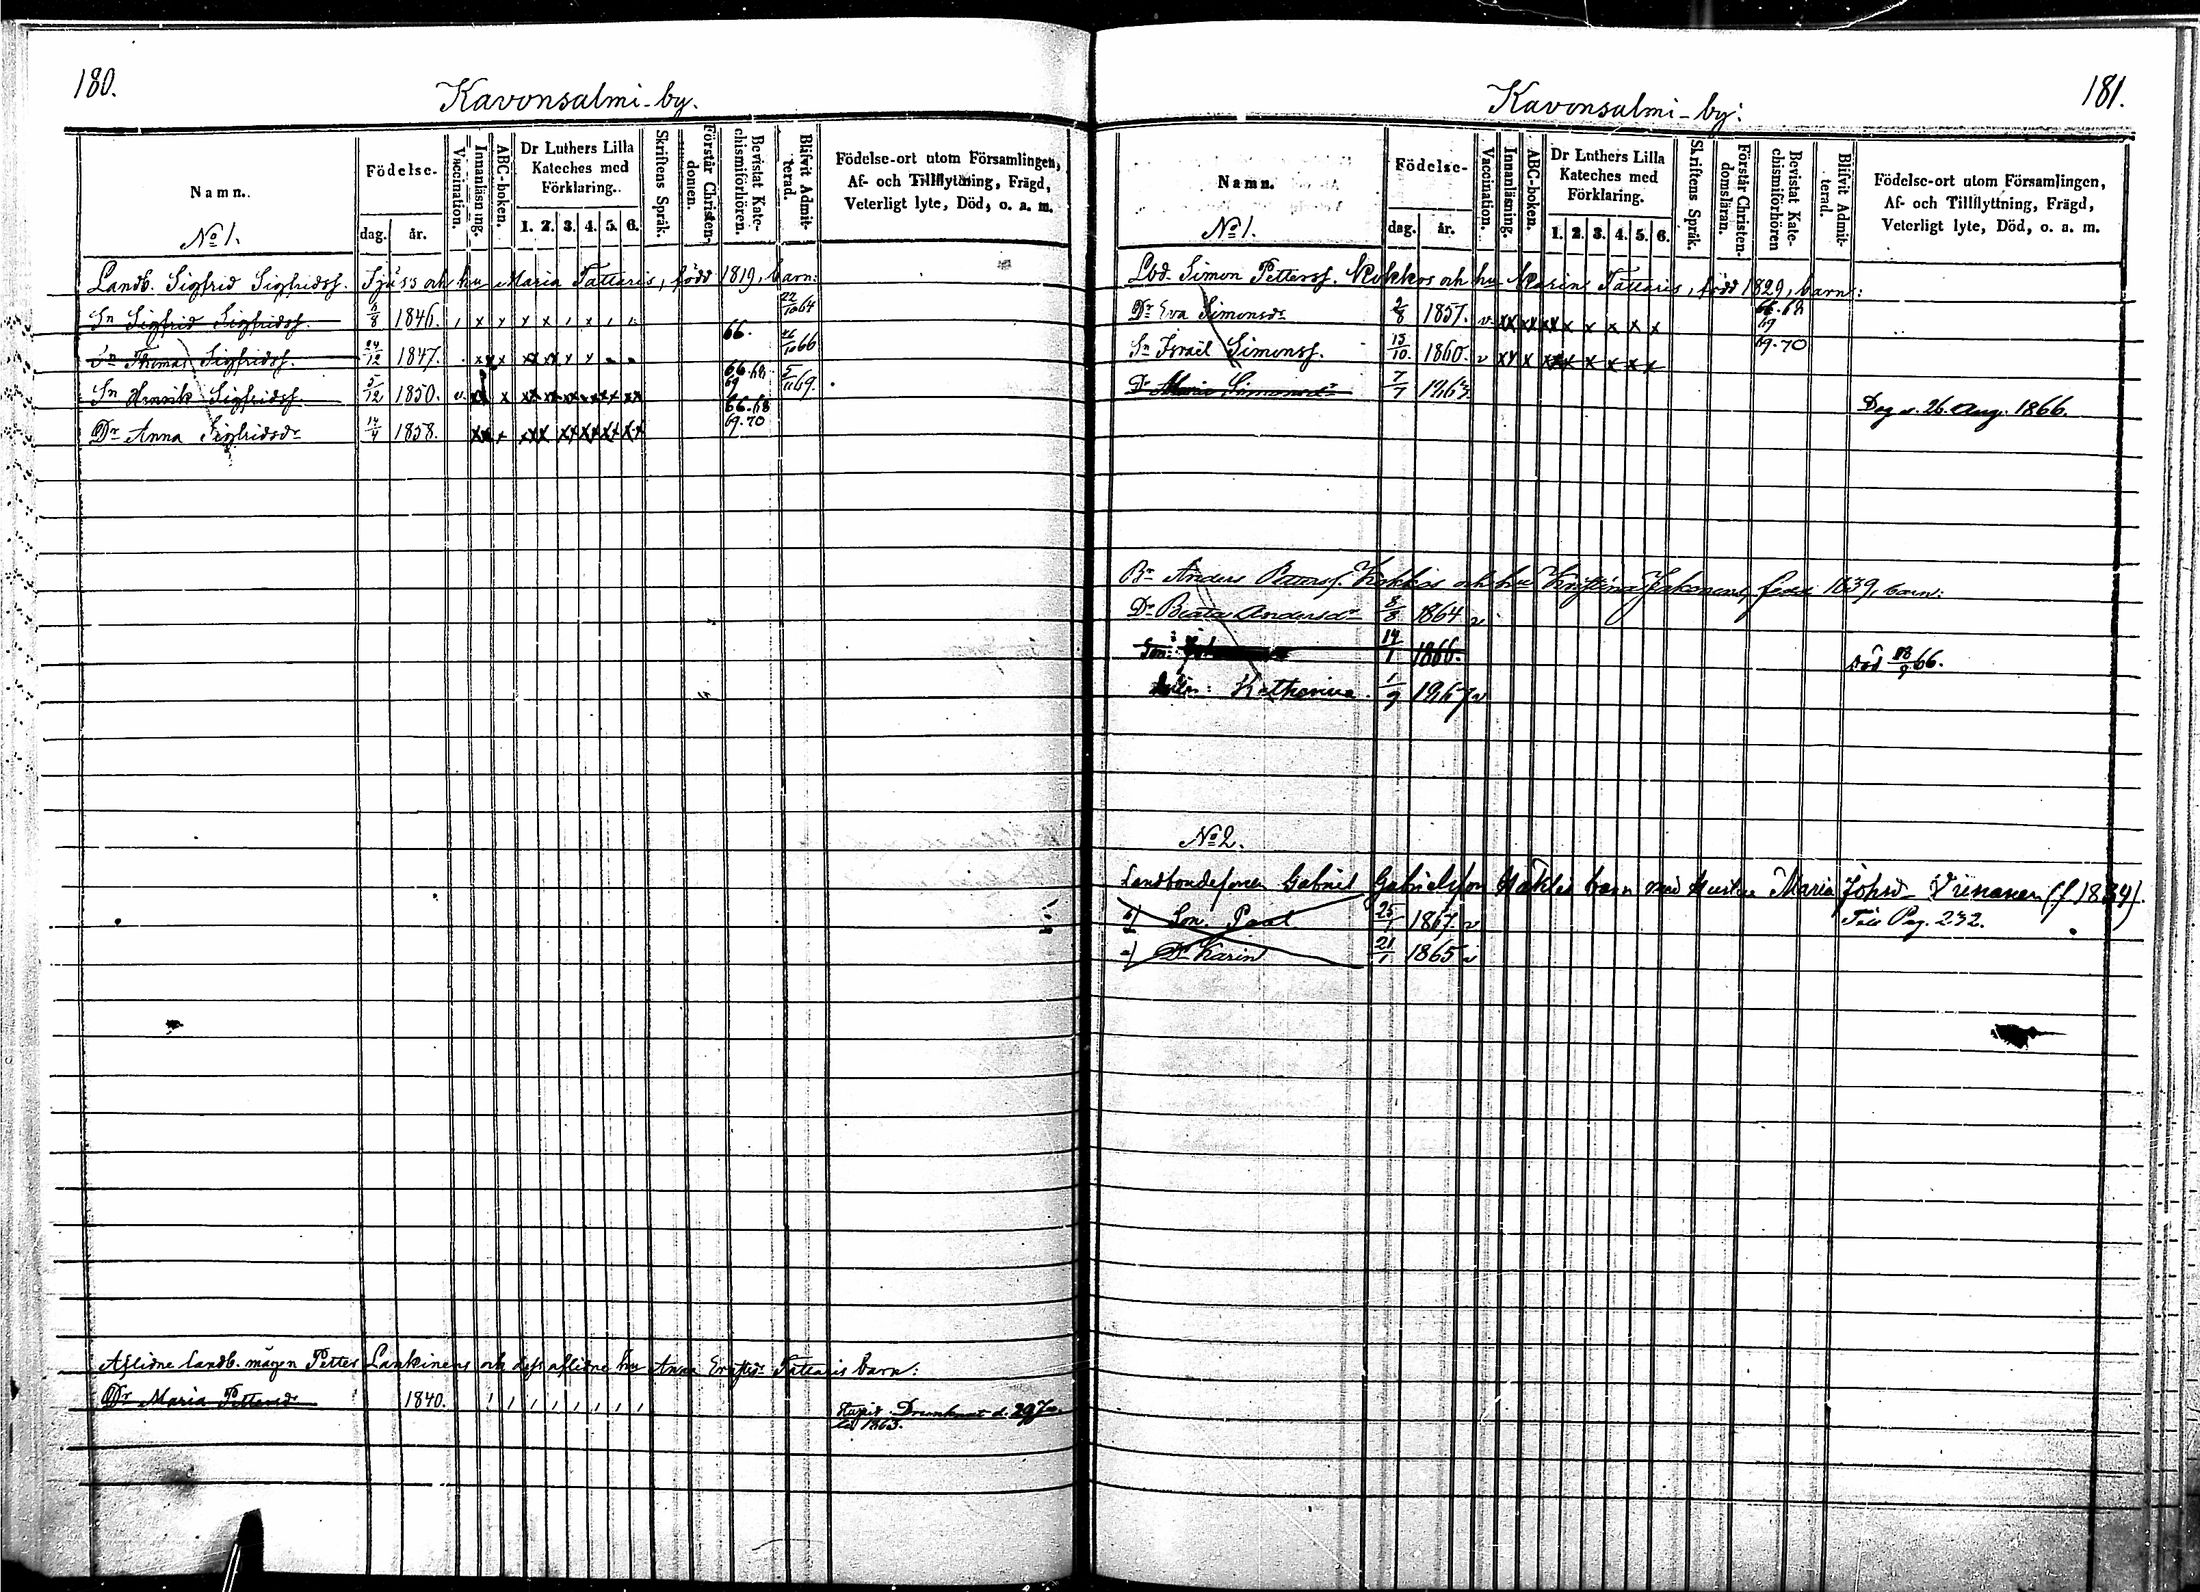 180.
Kavonsalmi-by.
Namn.
No 1.
Födelse.
dag. år.
Vaccination.
Innanläsning.
ABC-boken.
Dr Luthers Lilla Kateches med Förklaring.
1. 2. 3. 4. 5. 6.
Skriftens Språk.
Förstår Christendomen.
Bevistat Katechismiförhören.
Blifvit Admitterad.
Födelse-ort utom Församlingen,
Af- och Tillflyttning, Frägd,
Veterligt lyte, Död, o. a. m.
Landb. Sigfrid Sigfridss. och hu Maria Tattaris, född 1819, barn:
Sn Sigfrid Sigfridss. 1846. 22/10 64
Sn Thomas Sigfridss. 24/12 1847. 66. 26/10 66
Sn Henrik Sigfridss. 5/12 1850. v. 66.68 69 5/11 69.
Dr Anna Sigfridsdr 14/4 1858. 66.68 69.70
Aflidne landb. mågen Petter Laukinens och dess aflidne hu Anna Tattaris barn:
Dr Maria Pettersdr 1840. 1863.
181.
Kavonsalmi-by:
Namn.
No 1.
Födelse-
dag. år.
Vaccination.
Innanläsning.
ABC-boken.
Dr Luthers Lilla Kateches med Förklaring.
1. 2. 3. 4. 5. 6.
Skriftens Språk.
Förstår Christendomsläran.
Bevistat Katechismiförhören
Blifvit Admitterad.
Födelse-ort utom Församlingen,
Af- och Tillflyttning, Frägd,
Veterligt lyte, Död, o. a. m.
Simon Petterss. och hu Karin Tattaris, född 1829, barn:
Dr Eva Simonsdr 2/8 1857. v 66.68 69
Sn Israël Simonss. 13/10 1860. v 69.70
Dr Maria Simonsdr 7/7 26. Aug. 1866.
Br Anders Petterss. och hu Kristina född 1839, barn:
Dr Beata Andersdr 8/8 1864 v
Son: 14/1 1866. Död 66.
Katharina 1/9 1867 v
No 2.
Landbondesonen Gabriel Gabrielsson barn med hustru Maria (f. 1834).
b) Son Paal 25/1 1867. v Pag. 232.
a) Dr Karin 21/1 1865 v